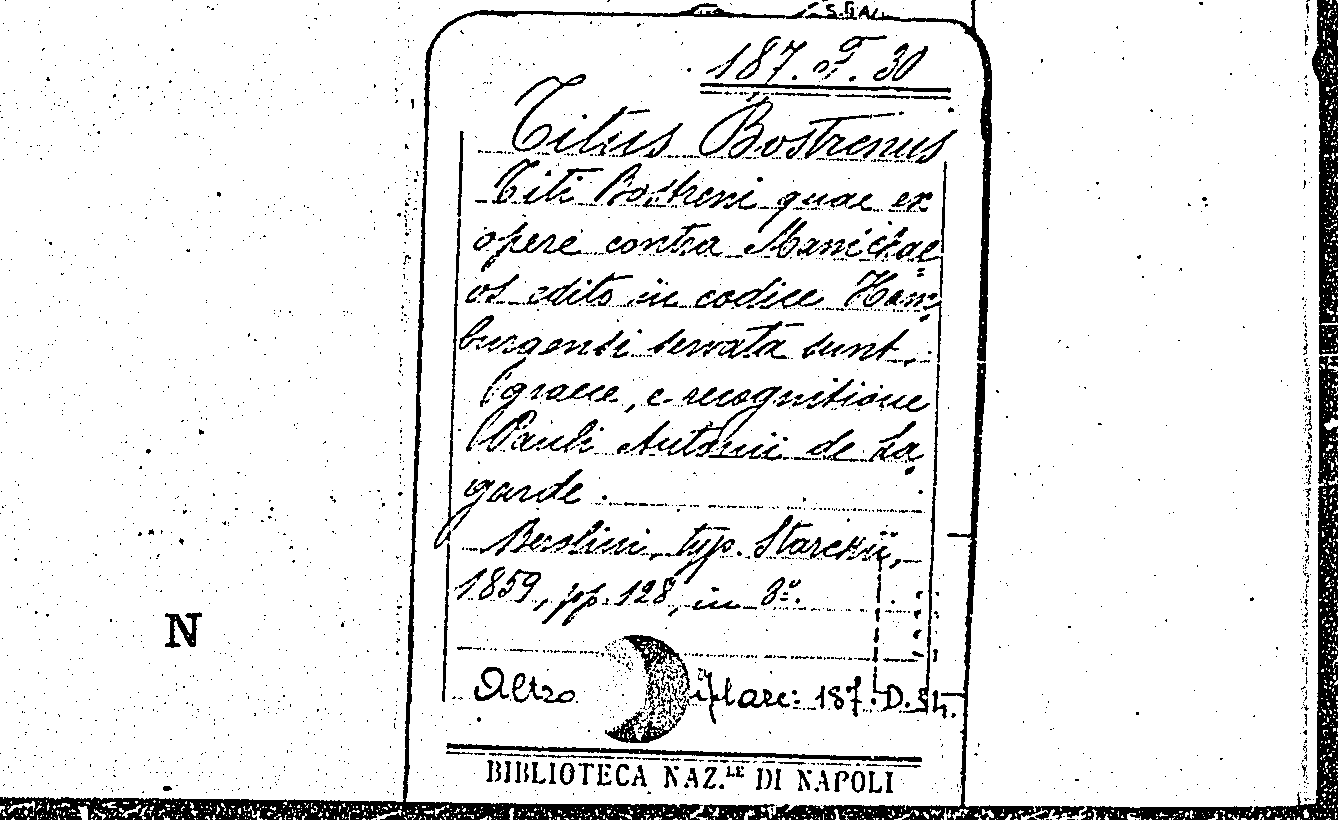 187. F. 30
Titus Bostrenus
Titi Bostreni quae ex
opere contra Manichae=
os edito in codice Ham=
burgensi servata sunt,
graece, e recognitione
Pauli Antonii de La=
garde.
Berolini, typ. Starckii,
1859, pp. 128, in 8º.
N
Altro 187. D.
BIBLIOTECA NAZ.LE DI NAPOLI